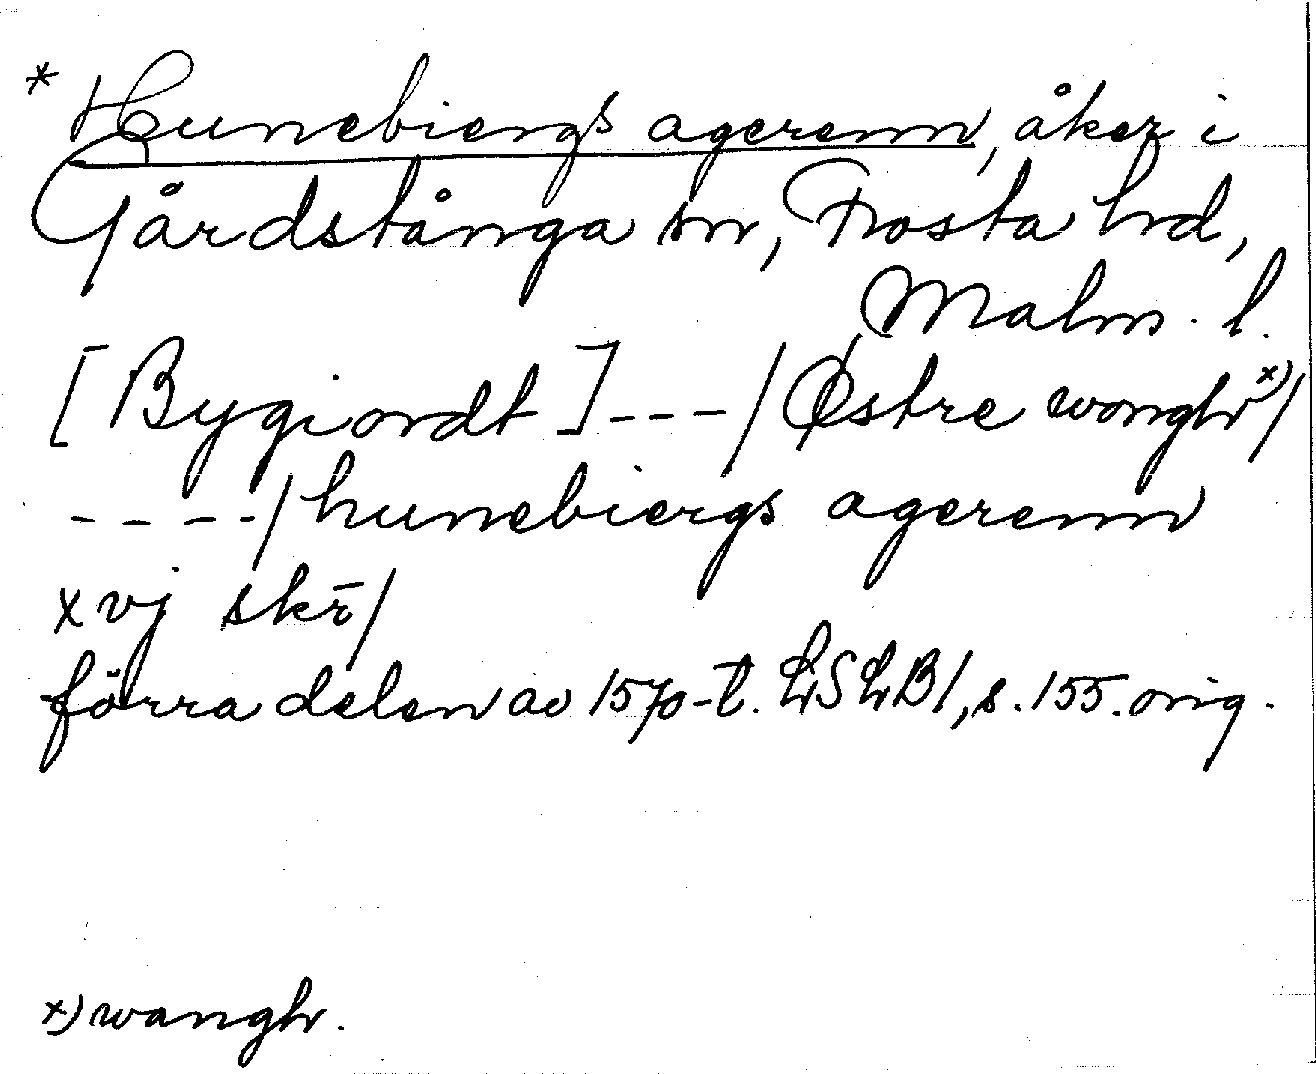 * Hunebiergs agerenn, åker i
Gårdstånga sn, Frosta hd,
Malm. l.
[Bygiordt] --- / Østre wonghr x) /
---- / hunebiergs agerenn
xvj skr̄ /
förra delen av 1570-t. LSLB1, s. 155. orig.
x) wanghr.